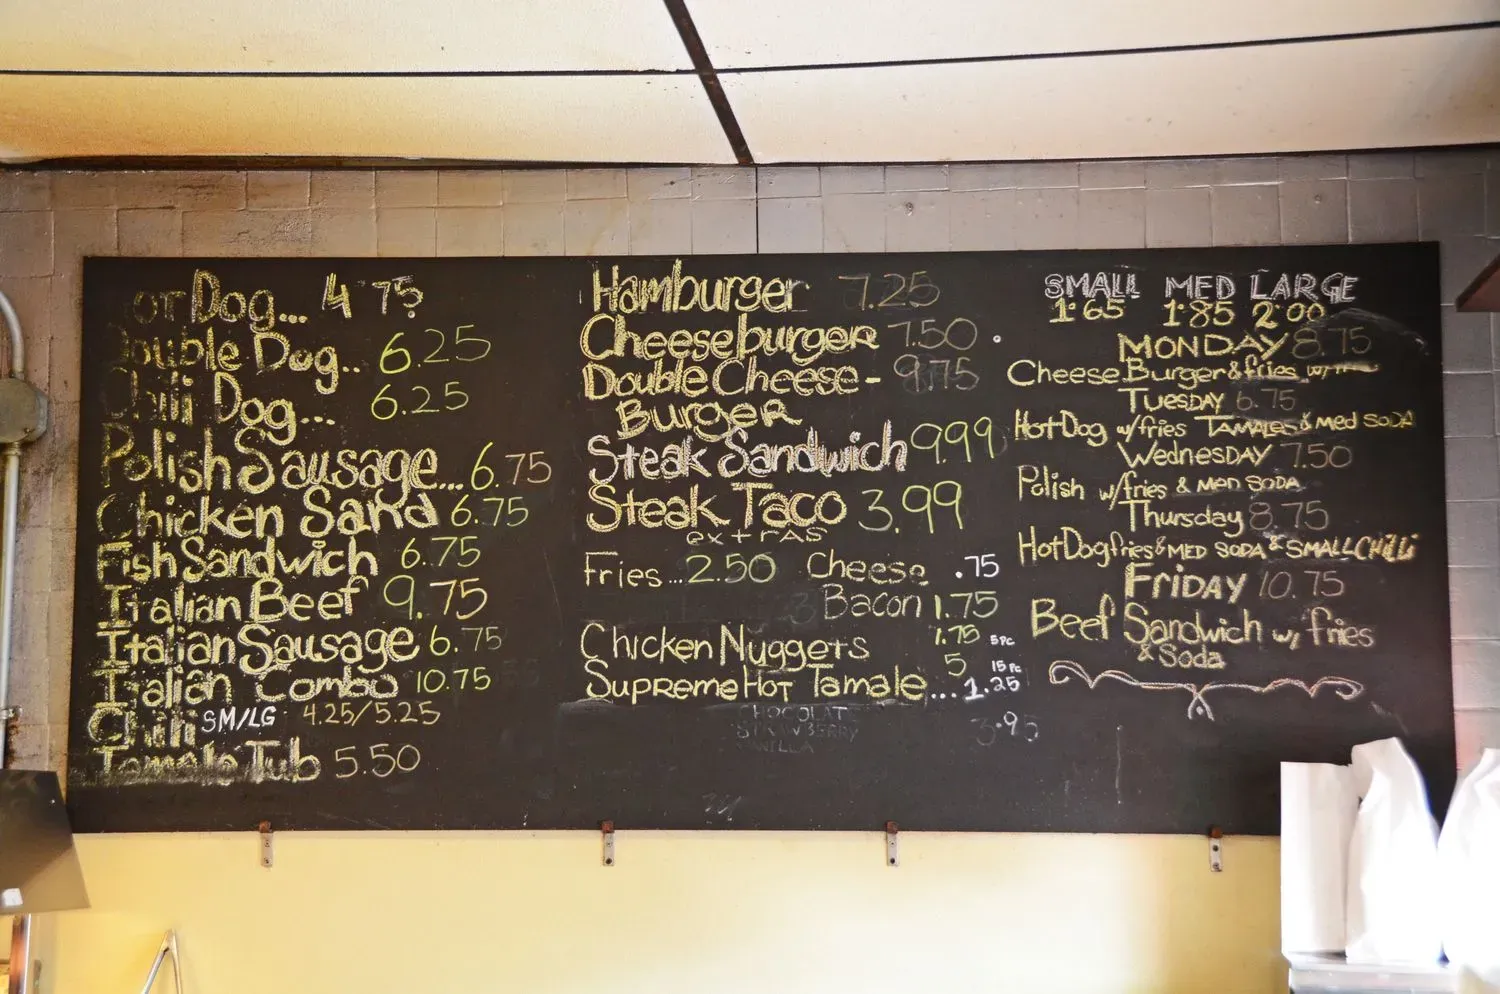 Hot Dog... 4.75
Double Dog.. 6.25
Chili Dog... 6.25
Polish Sausage... 6.75
Chicken Sand 6.75
Fish Sandwich 6.75
Italian Beef 9.75
Italian Sausage 6.75
Italian Combo 10.75
Chili SM/LG 4.25/5.25
Tamale Tub 5.50
Hamburger 7.25
Cheeseburger 7.50
Double Cheese- 9.75
Burger
Steak Sandwich 9.99
Steak Taco 3.99
extras
Fries... 2.50 Cheese .75
Bacon 1.75
Chicken Nuggets 1.75 5pc
5 15pc
Supreme Hot Tamale... 1.25
CHOCOLATE
STRAWBERRY 3.95
VANILLA
SMALL MED LARGE
1.65 1.85 2.00
MONDAY 8.75
Cheese Burger & fries w/
TUESDAY 6.75
Hot Dog w/fries TAMALES & MED SODA
WEDNESDAY 7.50
Polish w/fries & MED SODA
Thursday 8.75
Hot Dog fries & MED SODA & SMALL CHILI
FRIDAY 10.75
Beef Sandwich w/ fries
& Soda